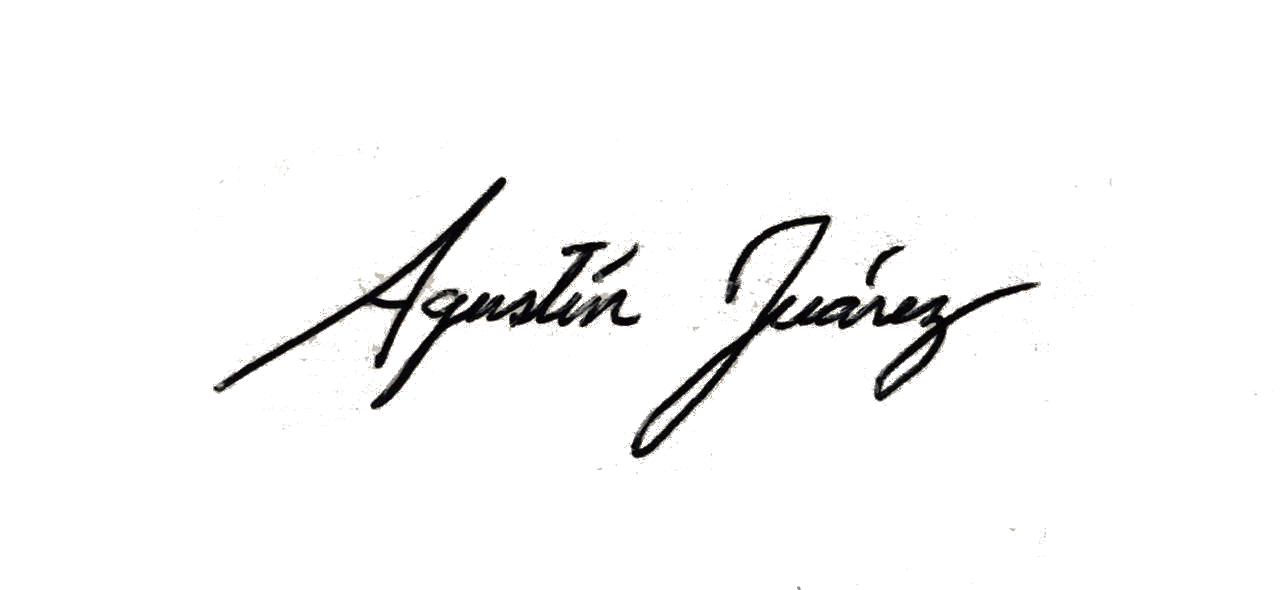 Agustín Juárez